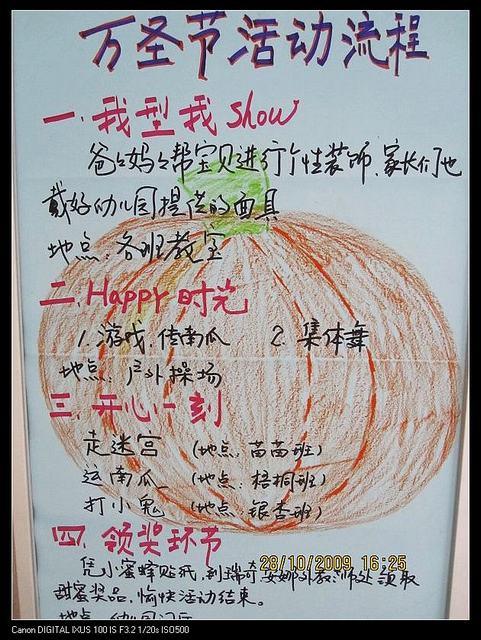 万圣节活动流程
一. 我型我Show
爸爸妈妈帮宝贝进行个性装饰.家长们也
戴好幼儿园提供的面具
地点:各班教室
二. Happy时光
1. 游戏:传南瓜 2. 集体舞
地点:户外操场
三. 开心一刻
走迷宫 (地点:苗苗班)
运南瓜 (地点:梧桐班)
打小鬼 (地点:银杏班)
四. 领奖环节
凭小蜜蜂贴纸,到瑞奇.安娜外教师处领取
28/10/2009 16:25
甜蜜奖品,愉快活动结束。
地点:幼儿园门厅
Canon DIGITAL IXUS 100 IS F3.2 1/20s ISO500